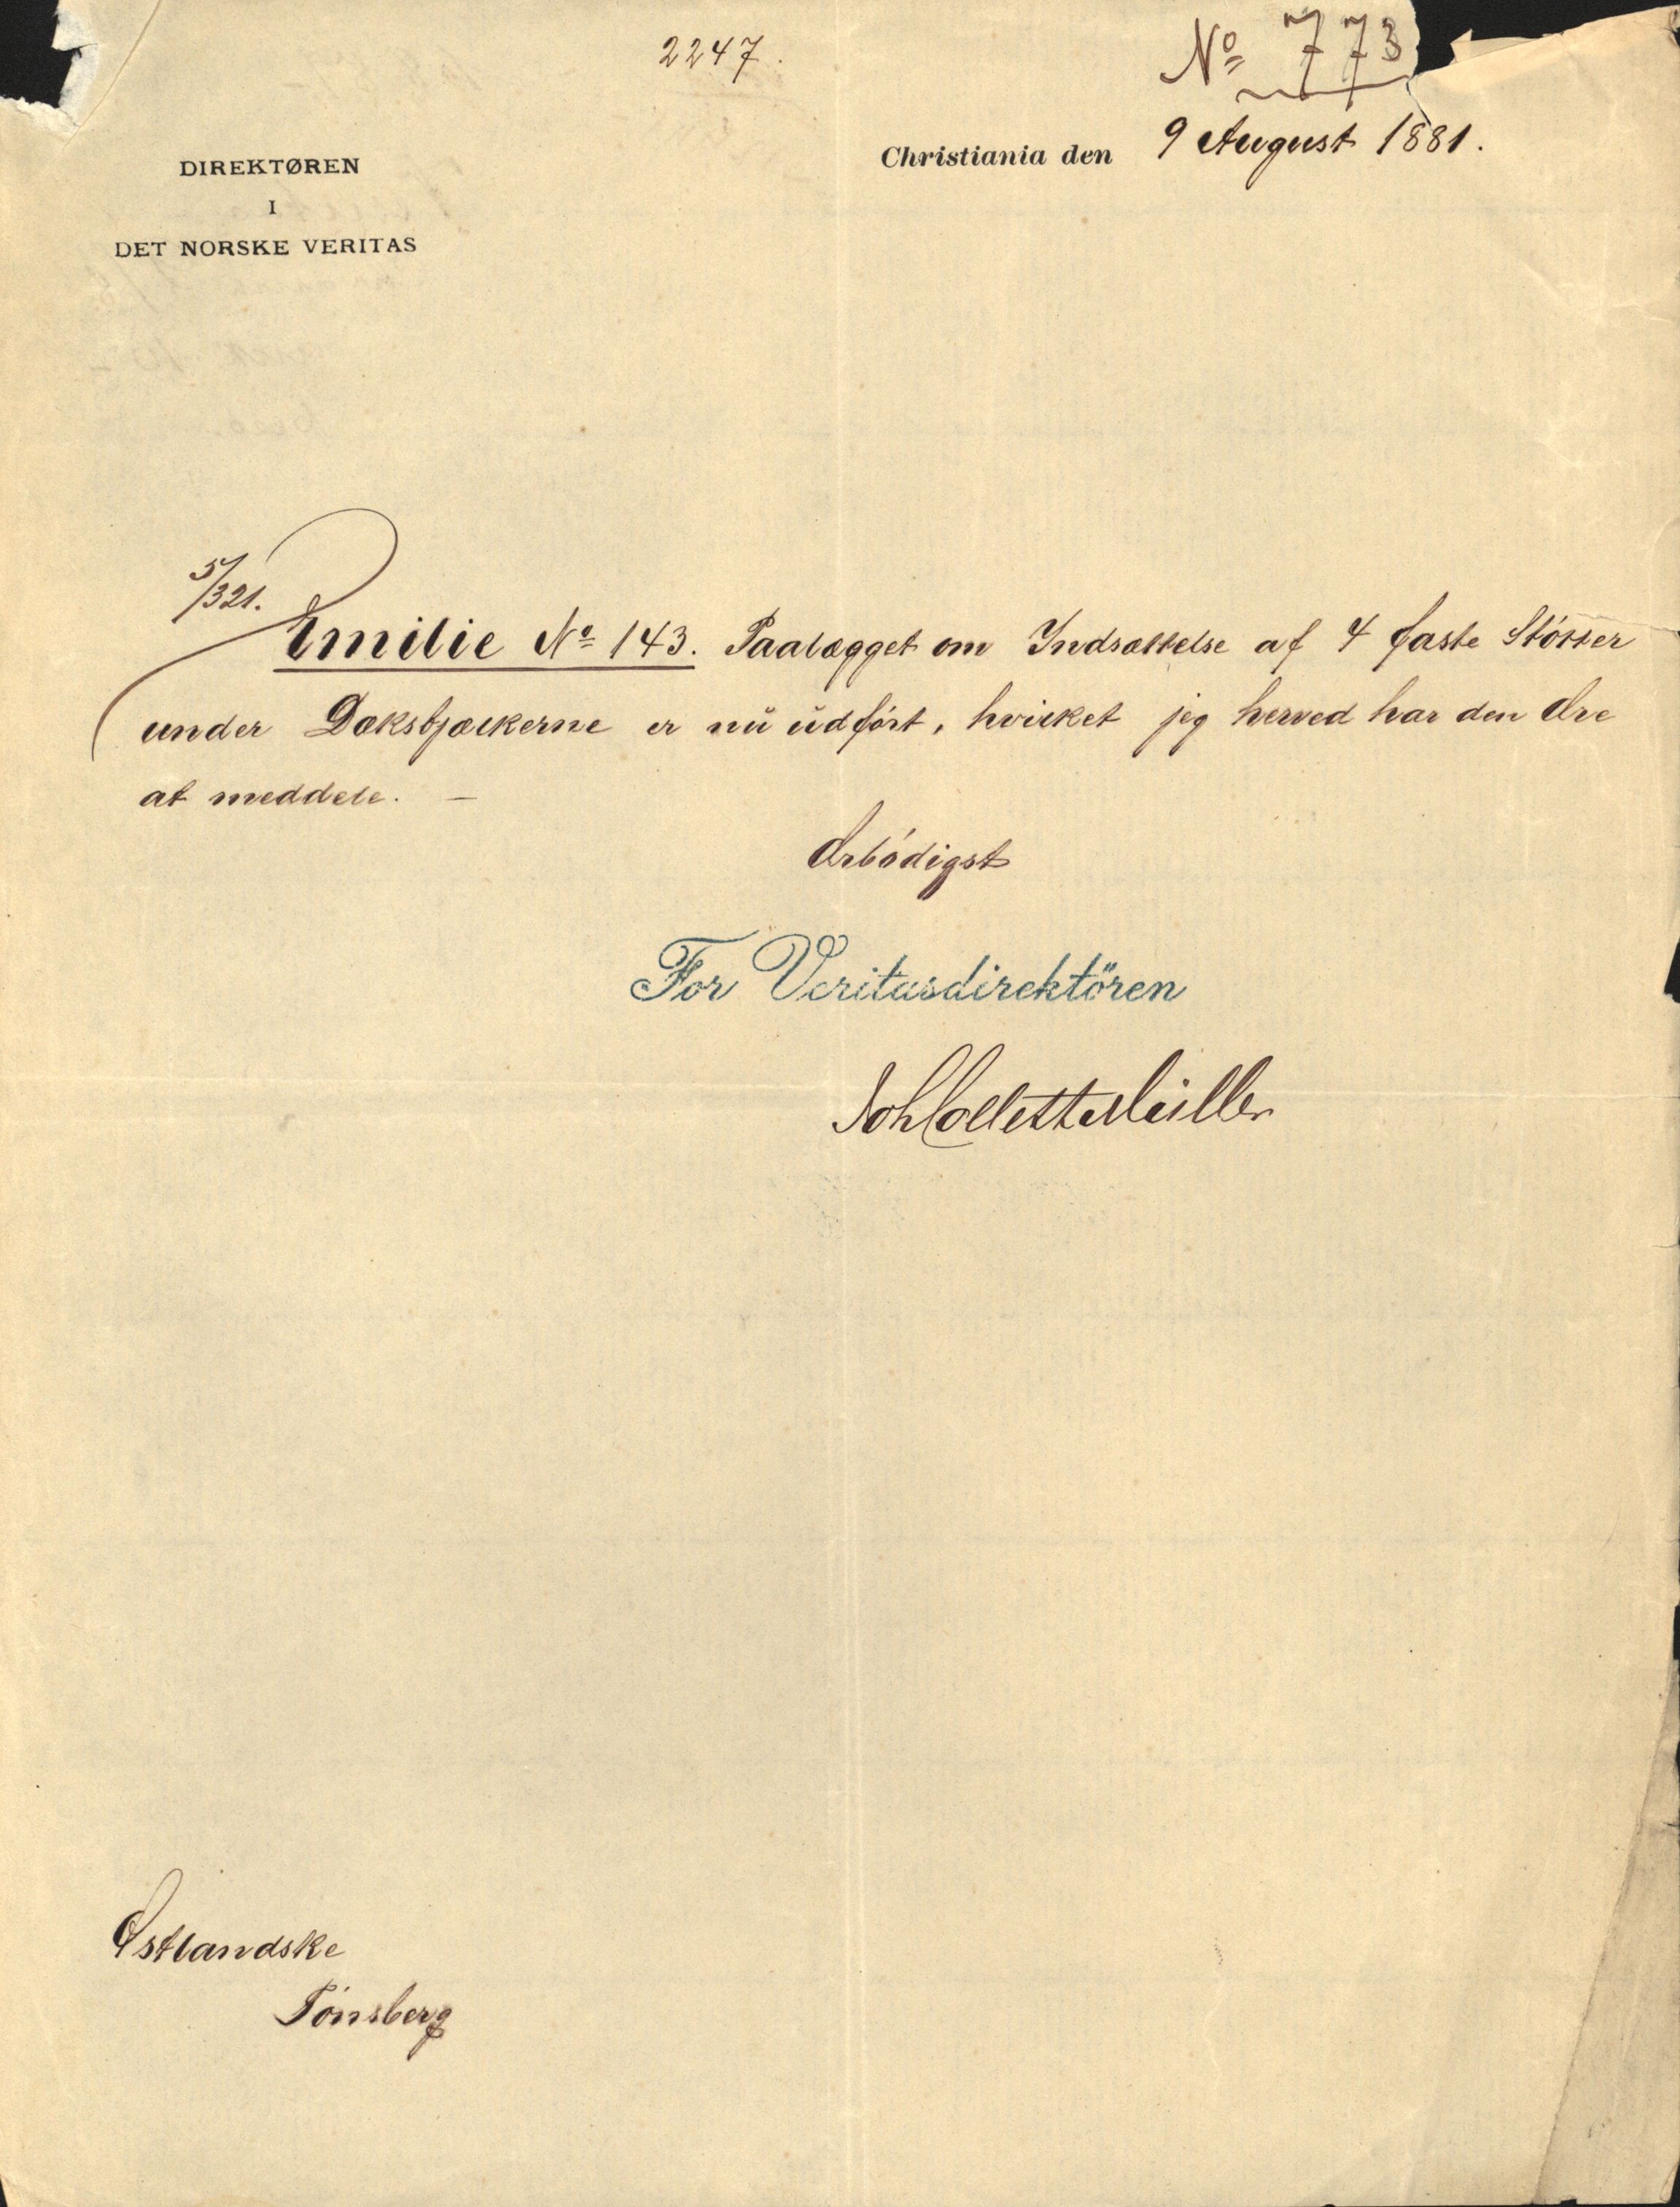 2247.
Nº 773
DIREKTØREN
I
DET NORSKE VERITAS
Christiania den 9 August 1881.
5/321.
Emilie Nº 143. Paalægget om Indsættelse af 4 faste Støtter
under Dæksbjælkerne er nu udført, hvilket jeg herved har den Ære
at meddele. —
Ærbødigst
For Veritasdirektören
Joh Collett Müller
Østlandske
Tönsberg